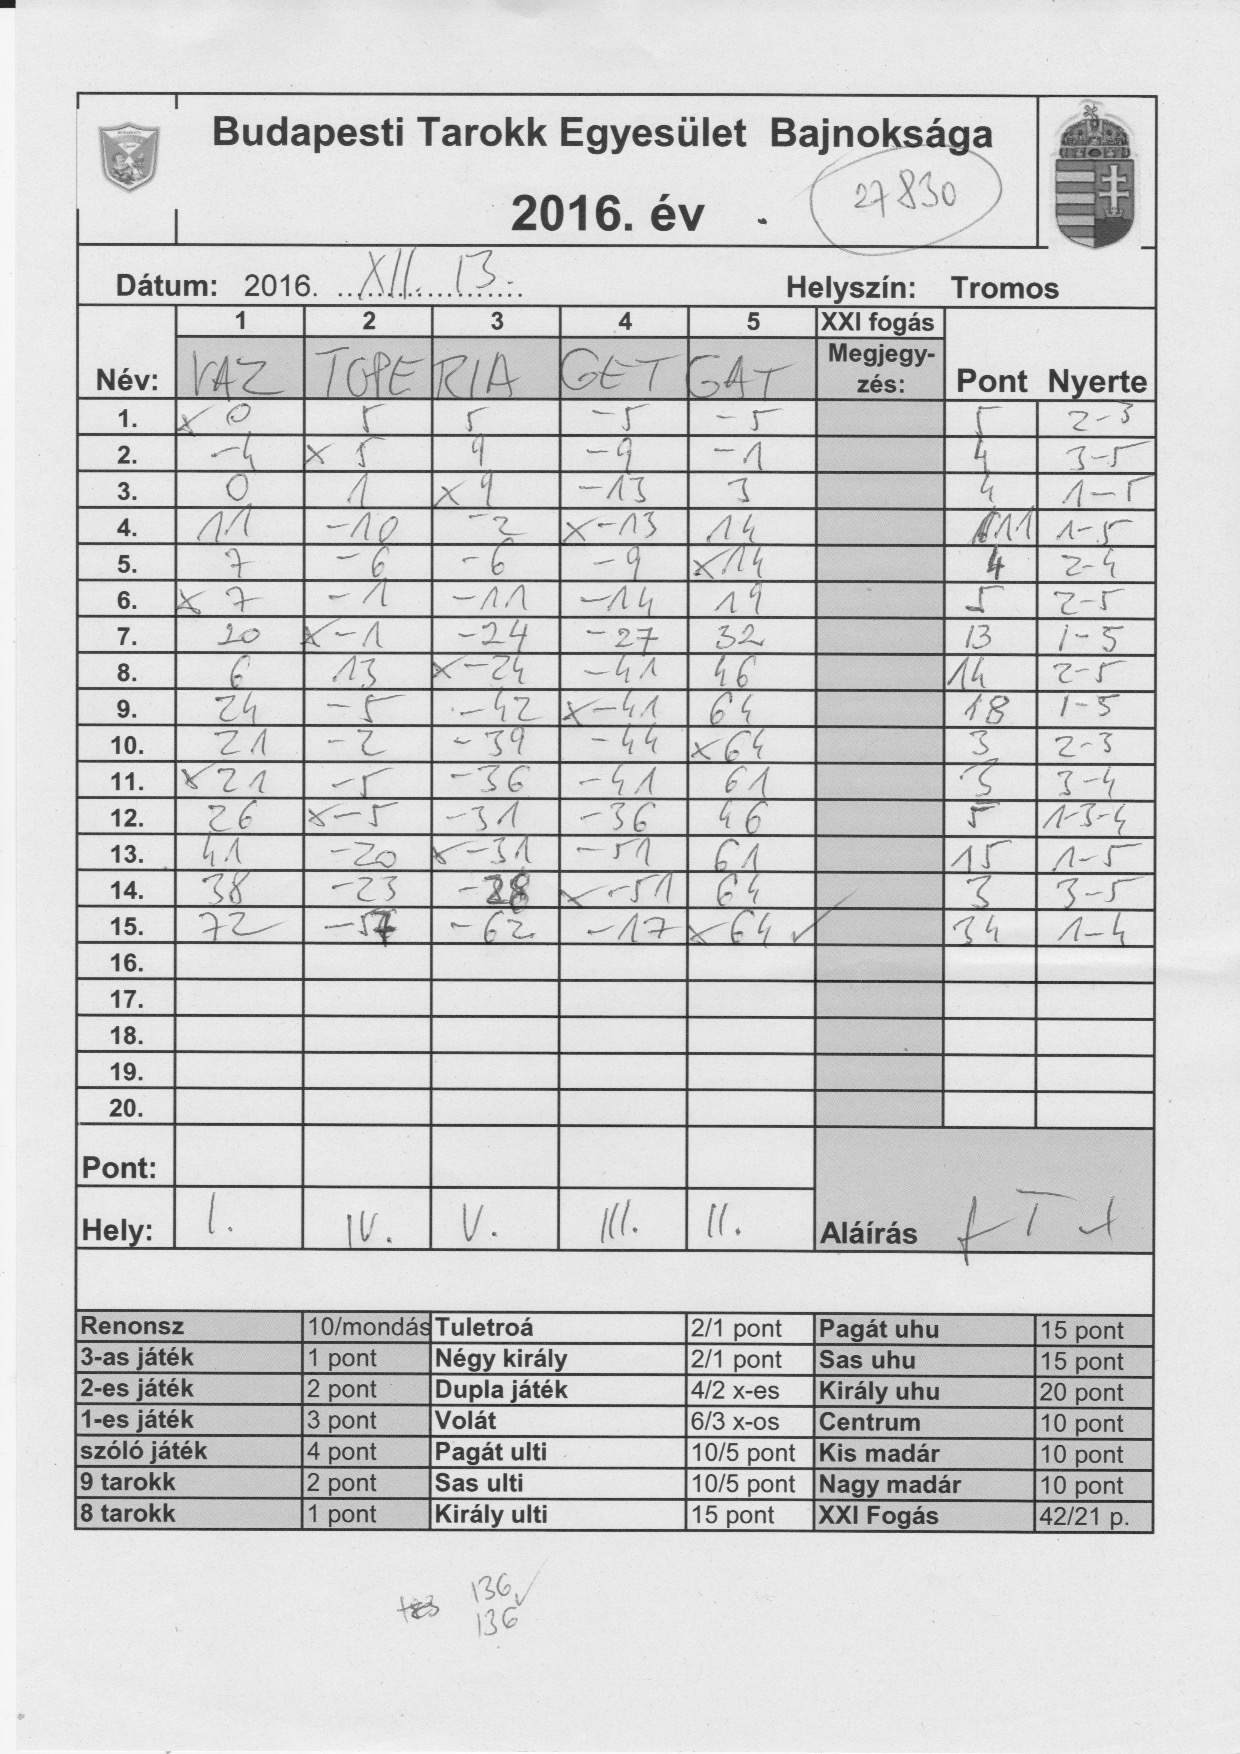 Budapesti Tarokk Egyesület Bajnoksága
2016. év
27830
Dátum: 2016. XII. 13. Helyszín: Tromos
1 2 3 4 5 XXI fogás
Név: VAZ TOPE RIA GET GAT Megjegy-zés: Pont Nyerte
1. x 0 5 5 -5 -5 5 2-3
2. -4 x 5 9 -9 -1 4 3-5
3. 0 1 x 9 -13 3 4 1-5
4. 11 -10 -2 x-13 14 11 1-5
5. 7 -6 -6 -9 x14 4 2-4
6. x 7 -1 -11 -14 19 5 2-5
7. 20 x-1 -24 -27 32 13 1-5
8. 6 13 x-24 -41 46 14 2-5
9. 24 -5 -42 x-41 64 18 1-5
10. 21 -2 -39 -44 x64 3 2-3
11. x21 -5 -36 -41 61 3 3-4
12. 26 x-5 -31 -36 46 5 1-3-4
13. 41 -20 x-31 -51 61 15 1-5
14. 38 -23 -28 x-51 64 3 3-5
15. 72 -57 -62 -17 x64 ✓ 34 1-4
16.
17.
18.
19.
20.
Pont:
Hely: I. IV. V. III. II. Aláírás
Renonsz 10/mondás Tuletroá 2/1 pont Pagát uhu 15 pont
3-as játék 1 pont Négy király 2/1 pont Sas uhu 15 pont
2-es játék 2 pont Dupla játék 4/2 x-es Király uhu 20 pont
1-es játék 3 pont Volát 6/3 x-os Centrum 10 pont
szóló játék 4 pont Pagát ulti 10/5 pont Kis madár 10 pont
9 tarokk 2 pont Sas ulti 10/5 pont Nagy madár 10 pont
8 tarokk 1 pont Király ulti 15 pont XXI Fogás 42/21 p.
136 ✓
136